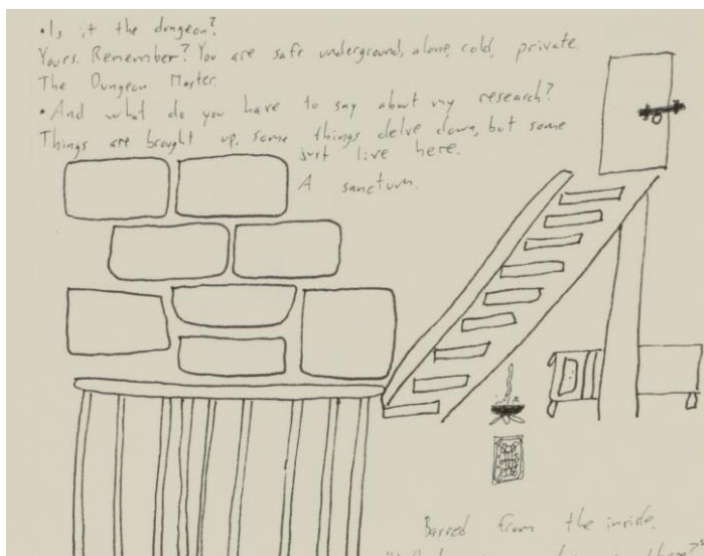 • Is it the dungeon?
Yours. Remember? You are safe underground, alone, cold, private.
The Dungeon Master.
• And what do you have to say about my research?
Things are brought up, some things delve down, but some
just live here.
A sanctum.
Barred from the inside.